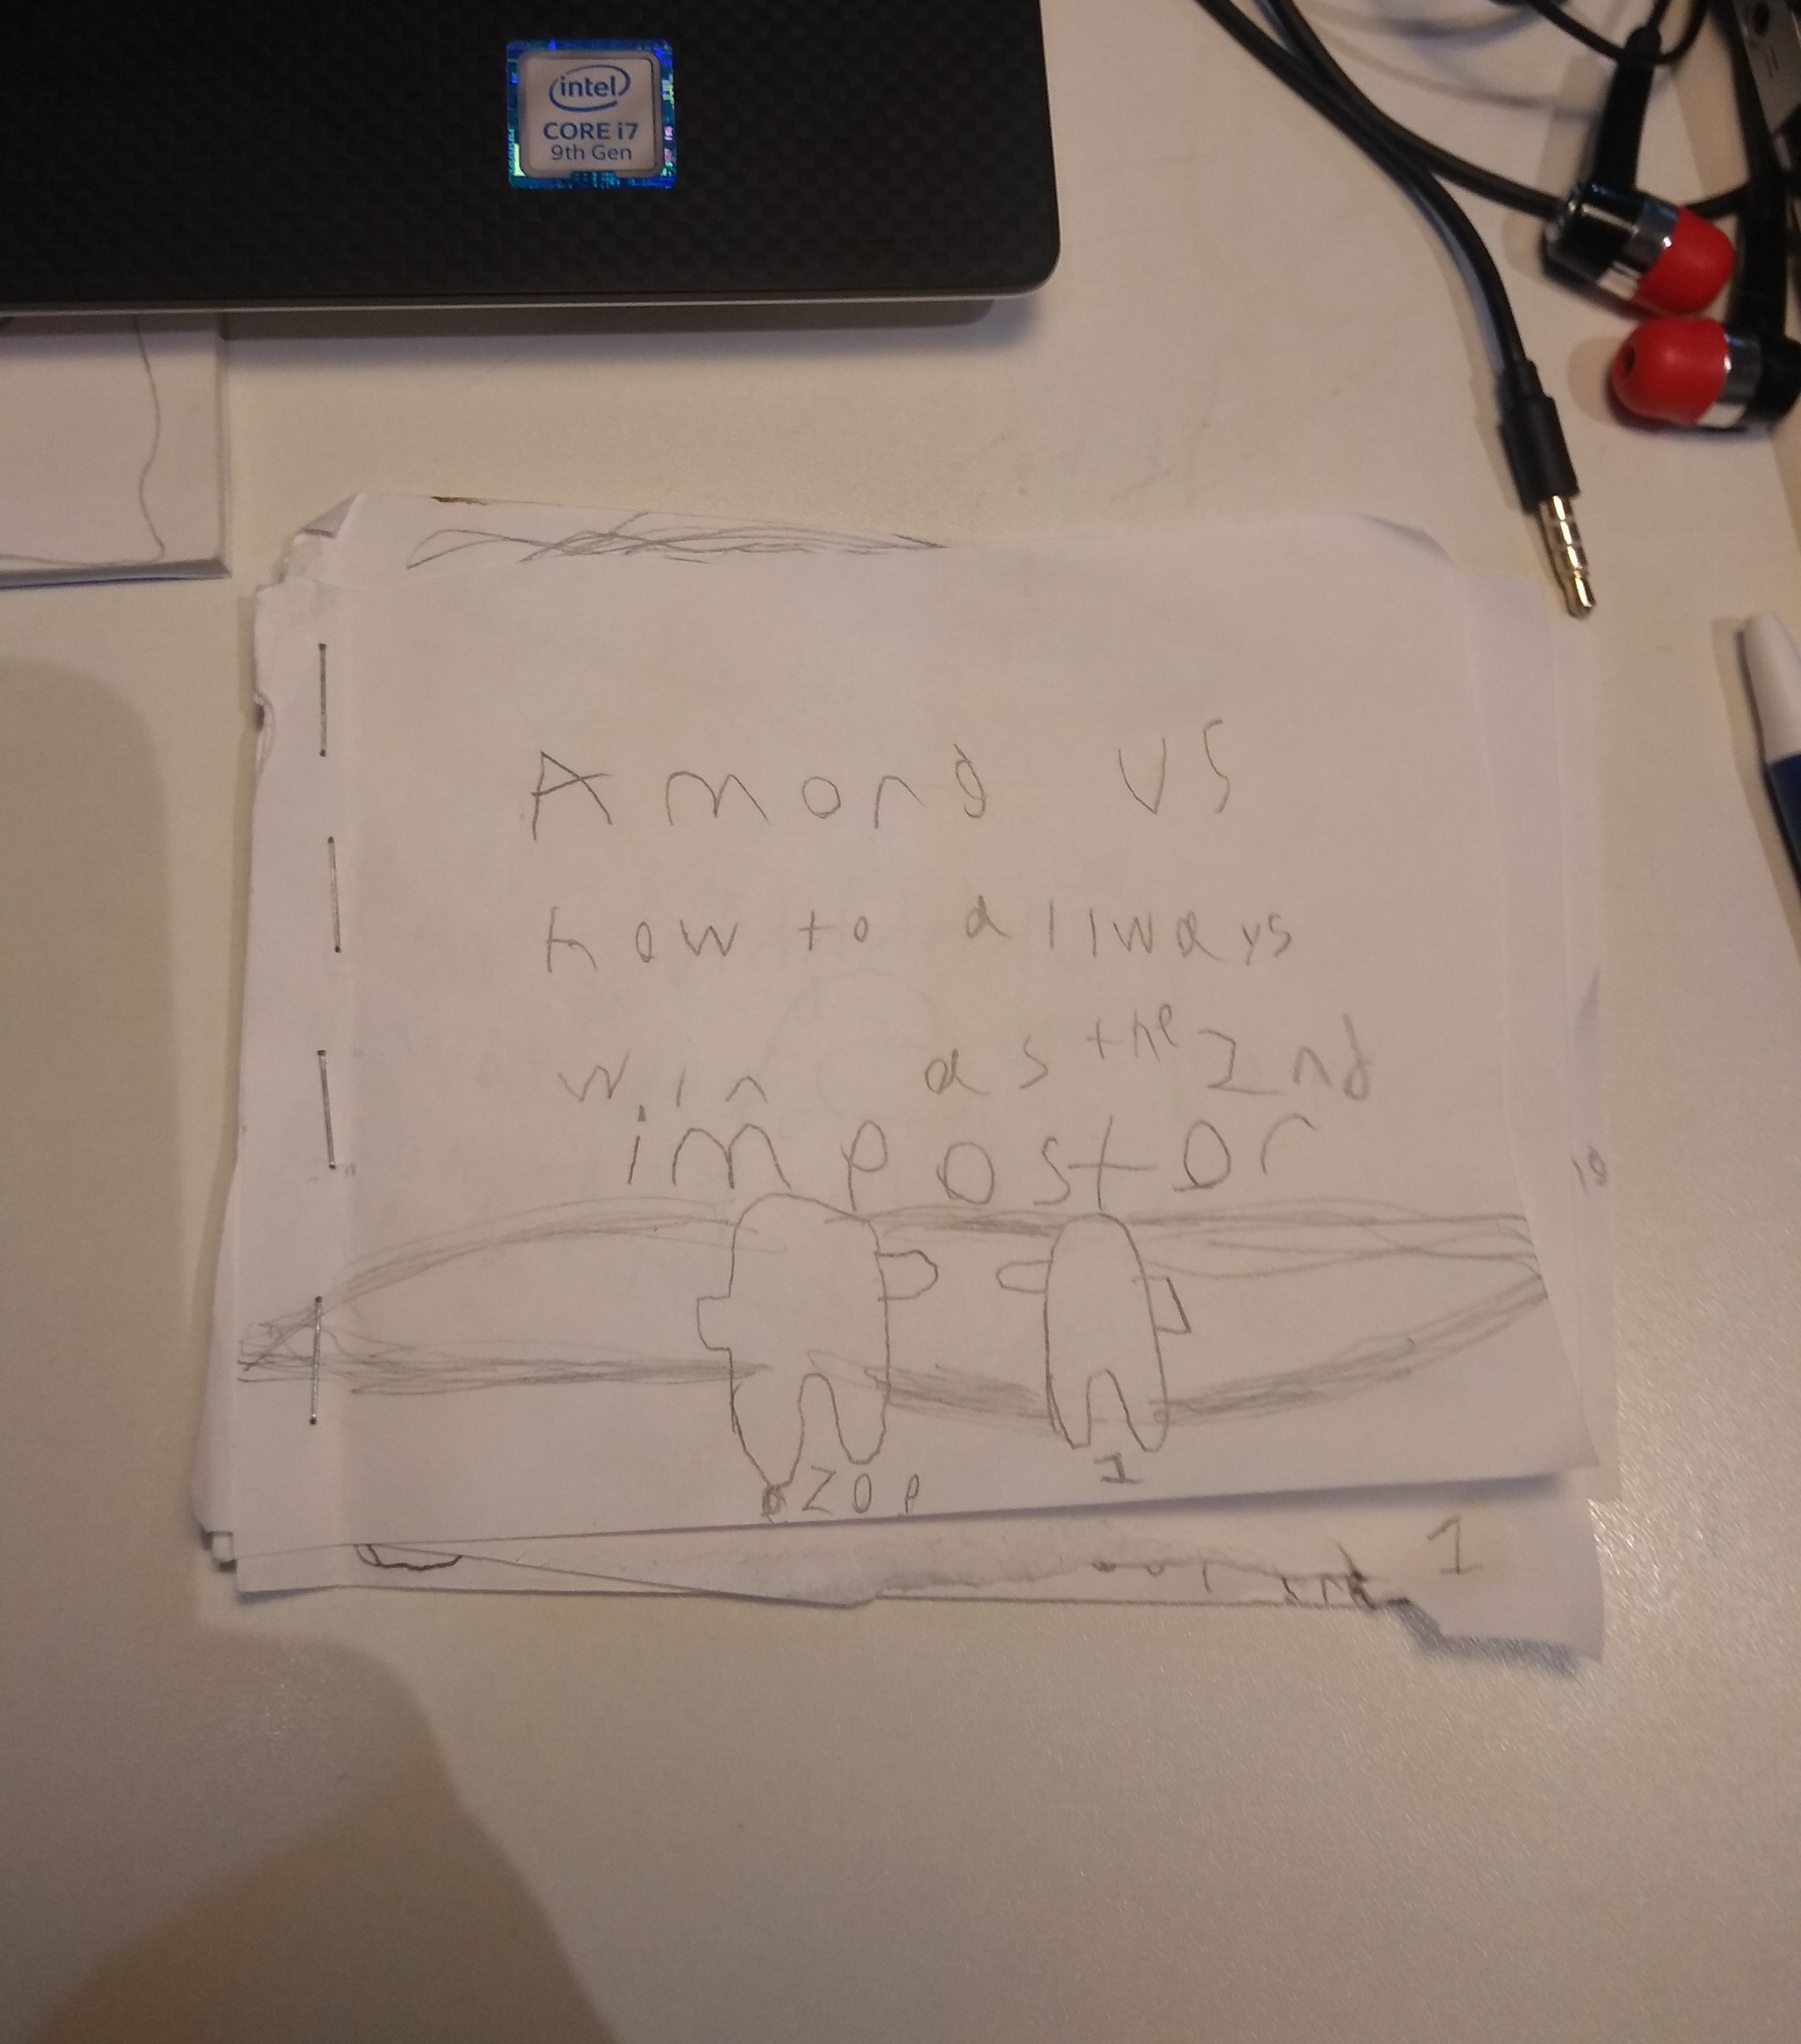 intel
CORE i7
9th Gen
Among US
how to allways
win as the 2nd
impostor
1
10
1